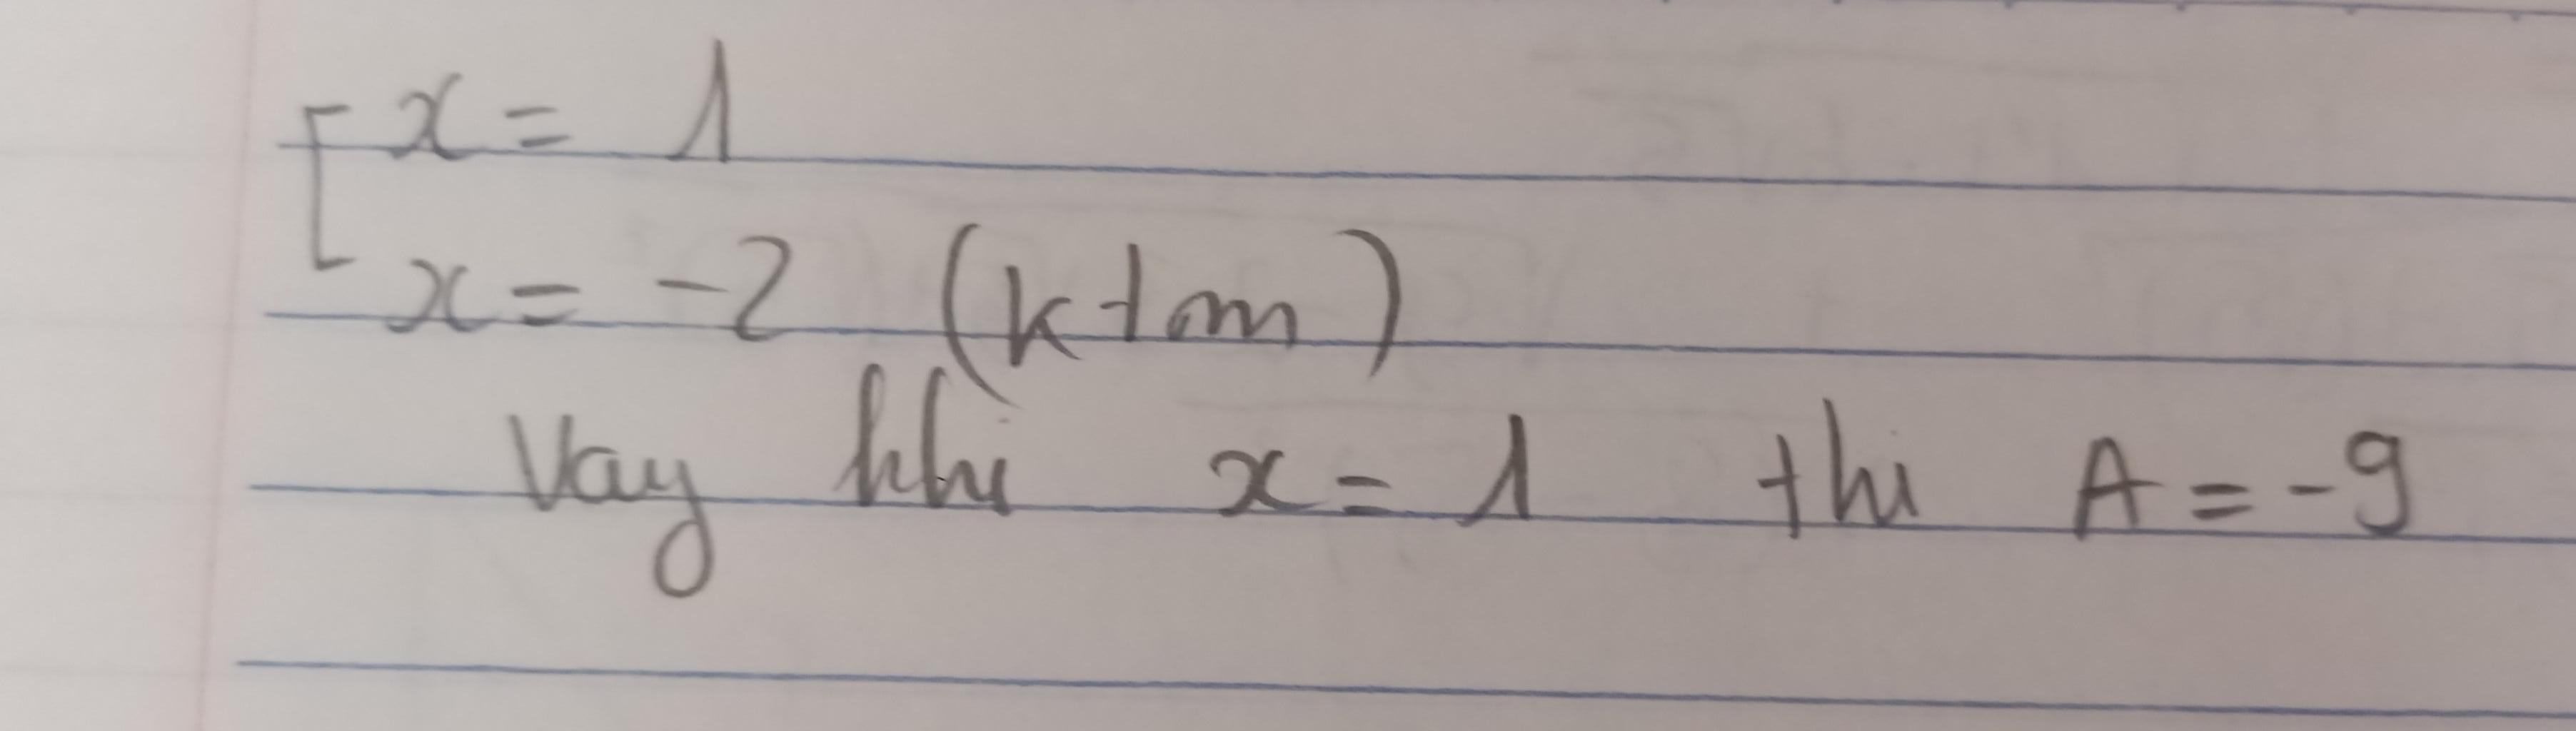 [ x = 1
x = -2 (ktm)
Vay khi x = 1 thi A = -9